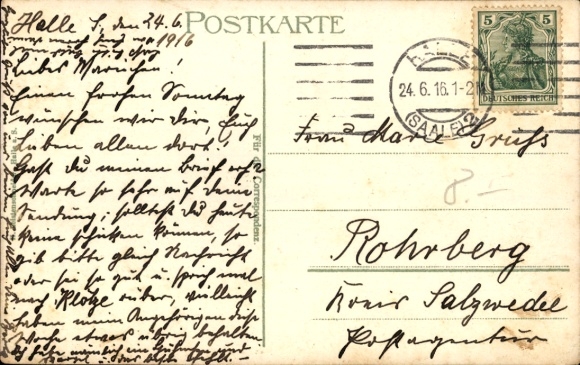 POSTKARTE
Halle S, den 24.6.
1916
Liebes Mariechen!
Einen frohen Sonntag
wünschen wir dir, Euch
Lieben allen dort!
Hast du meinen Brief erh?
Warte so sehr auf deine
Sendung; solltest du heute
keine schicken können, so
gib bitte gleich Nachricht
oder sei so gut u. sprich mal
nach Klötze rüber, vielleicht
haben meine Angehörigen diese
Woche etwas übrig behalten.
Ich habe nämlich ein und
Für die Correspondenz.
5 5
DEUTSCHES REICH
HALLE
24.6.16.1-2N
(SAALE) 2
Frau Marie Gruss
8.-
Rohrberg
Kreis Salzwedel
Postagentur